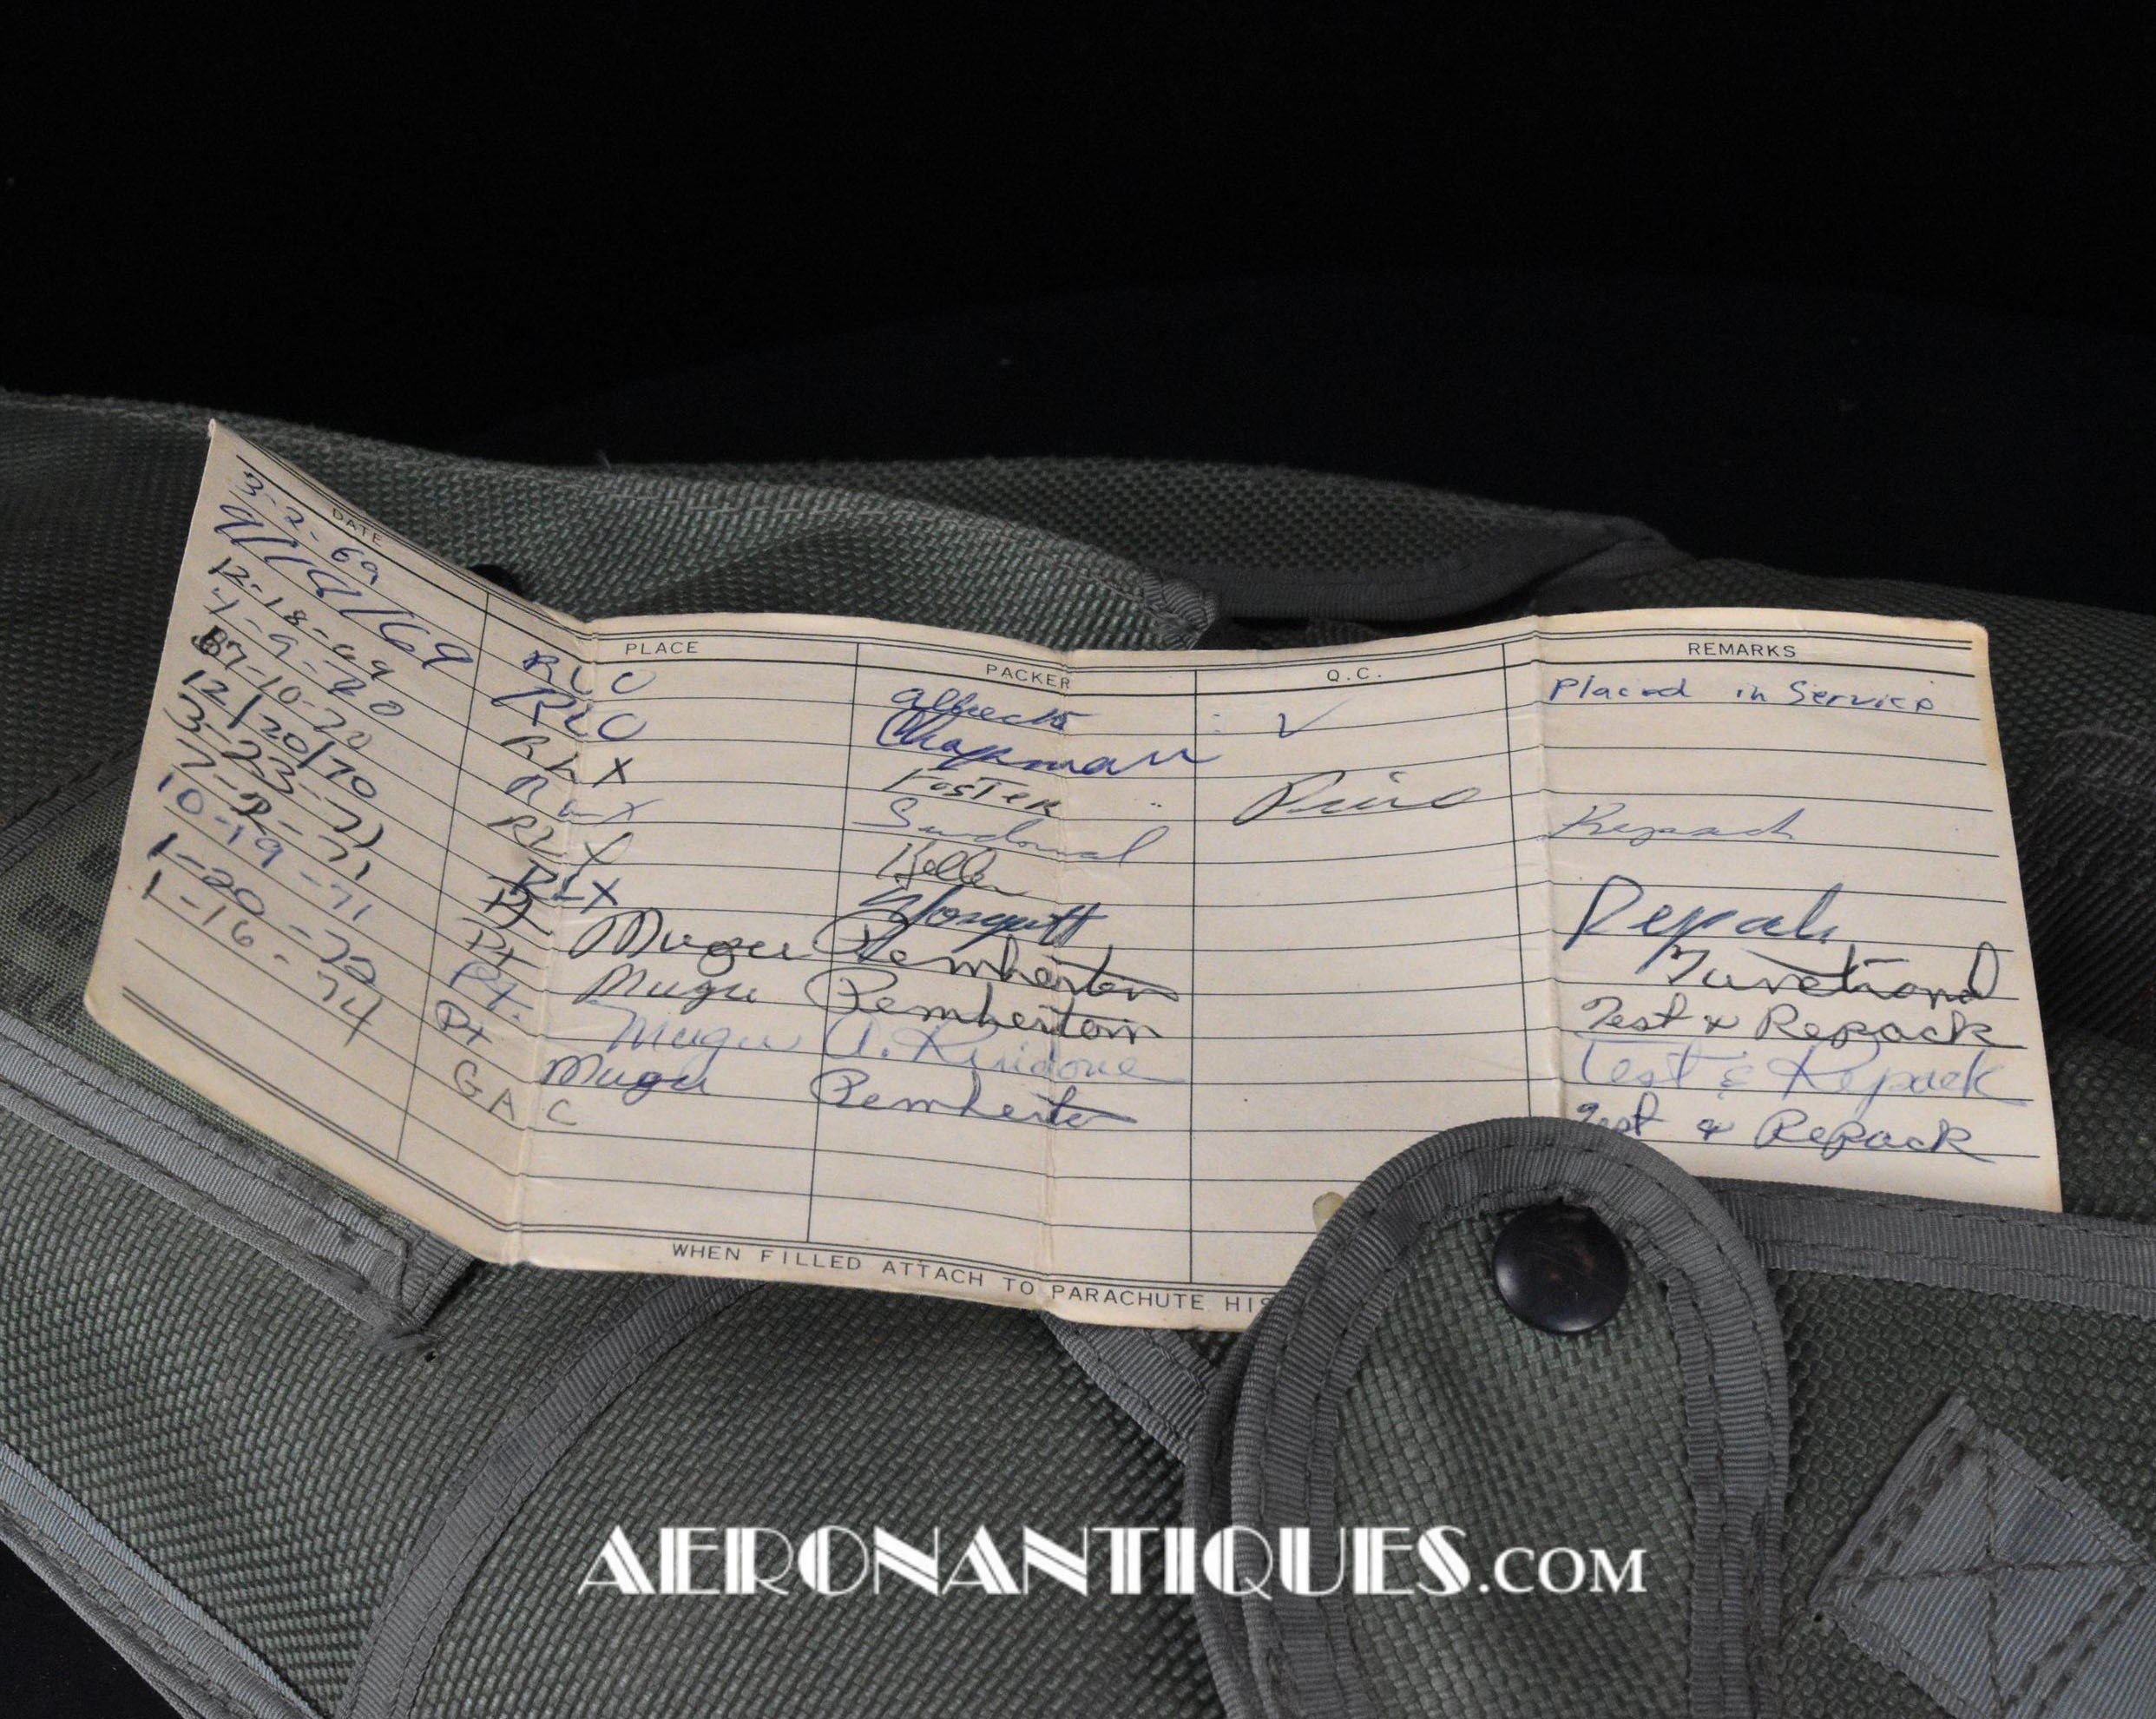 DATE PLACE PACKER Q.C. REMARKS
3-2-69 RLC Alberts ✓ Placed in Service
9/19/69 RLC Chapman
12-18-69 RLX Foster
4-9-70 RLX Sandoval Repack
7-10-70 RLX Keller
12/20/70 RLX Repack
3-23-71 Pt Mugu Pemberton Functional
7-8-71 Pt Mugu Pemberton Test & Repack
10-19-71 Pt. Mugu A. Test & Repack
1-20-72 Pt Mugu Pemberton Test & Repack
1-16-74 GAC
WHEN FILLED ATTACH TO PARACHUTE HIS
AERONANTIQUES.COM